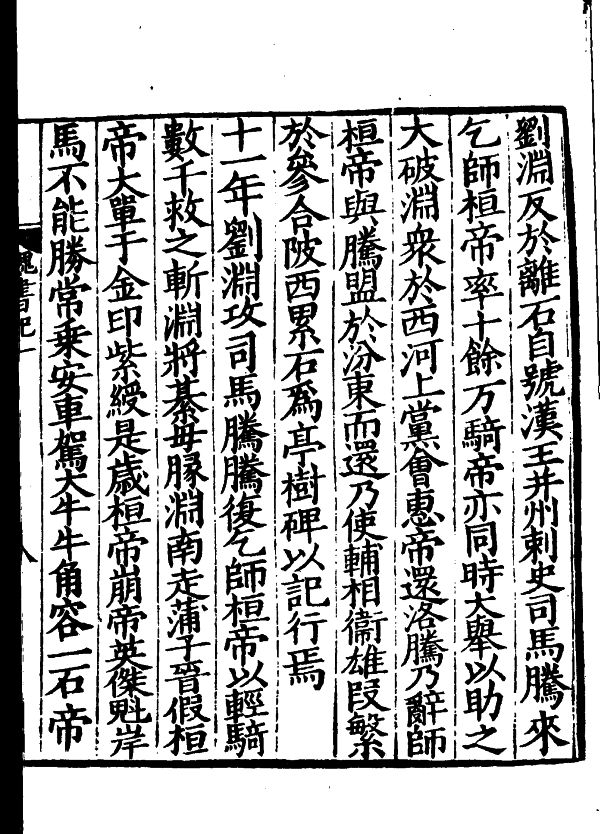 劉淵反於離石自號漢王并州刺史司馬騰來
乞師桓帝率十餘万騎帝亦同時大舉以助之
大破淵衆於西河上黨會惠帝還洛騰乃辭師
桓帝與騰盟於汾東而還乃使輔相衞雄段繁
於參合陂西累石爲亭樹碑以記行焉
十一年劉淵攻司馬騰騰復乞師桓帝以輕騎
數千救之斬淵將綦毋豚淵南走蒲子晉假桓
帝大單于金印紫綬是歲桓帝崩帝英傑魁岸
馬不能勝常乗安車駕大牛牛角容一石帝
魏書紀一